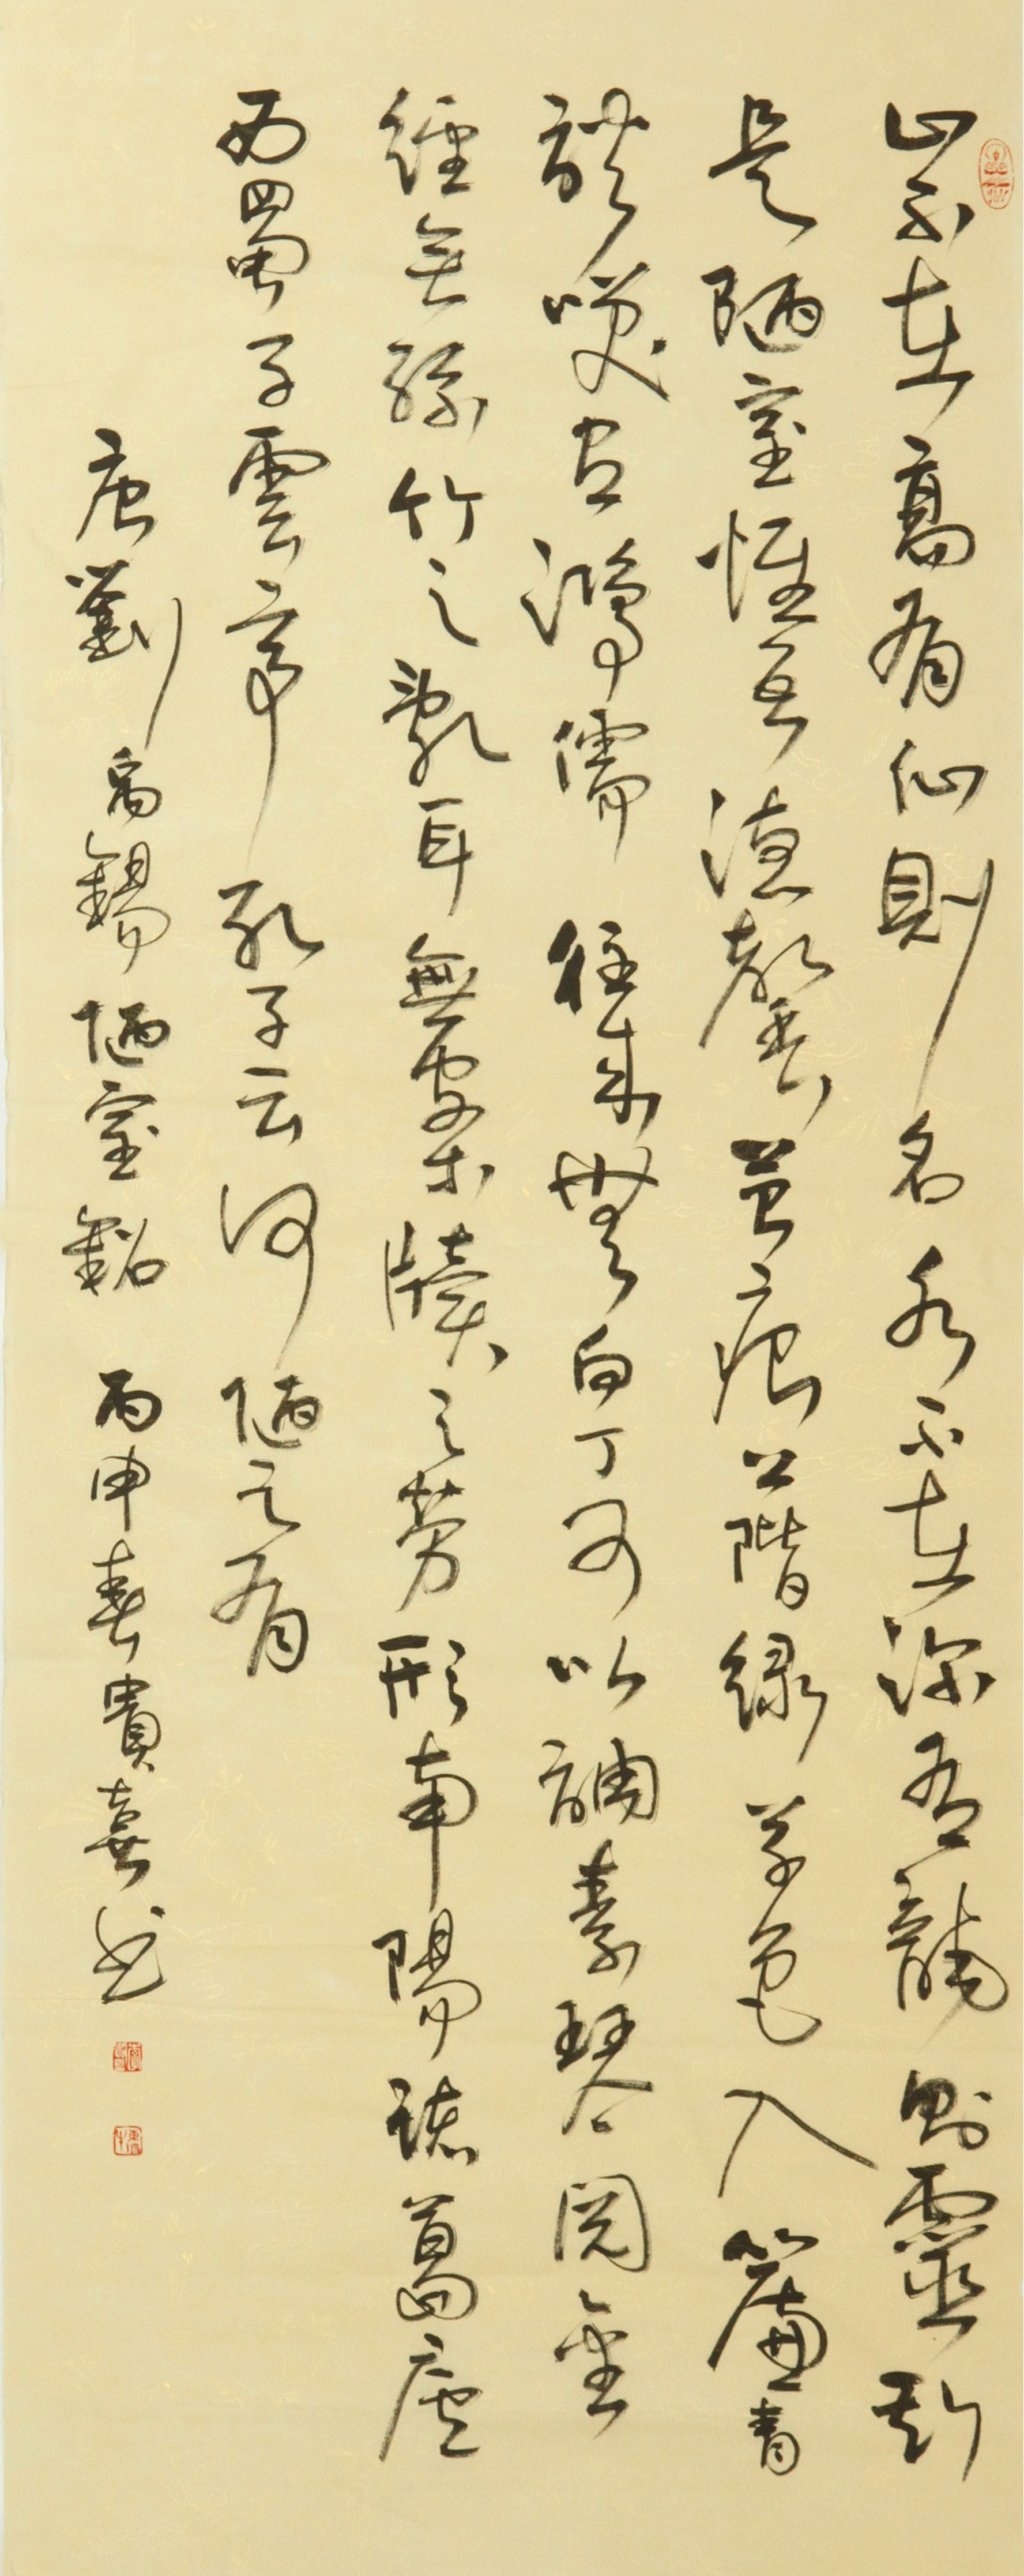 山不在高有仙則名水不在深有龍則靈斯
是陋室惟吾德馨苔痕上階綠草色入簾青
談笑有鴻儒往來無白丁可以調素琴閱金
經無絲竹之亂耳無案牘之勞形南陽諸葛廬
西蜀子雲亭孔子云何陋之有
唐劉禹錫陋室銘 丙申春貴喜書